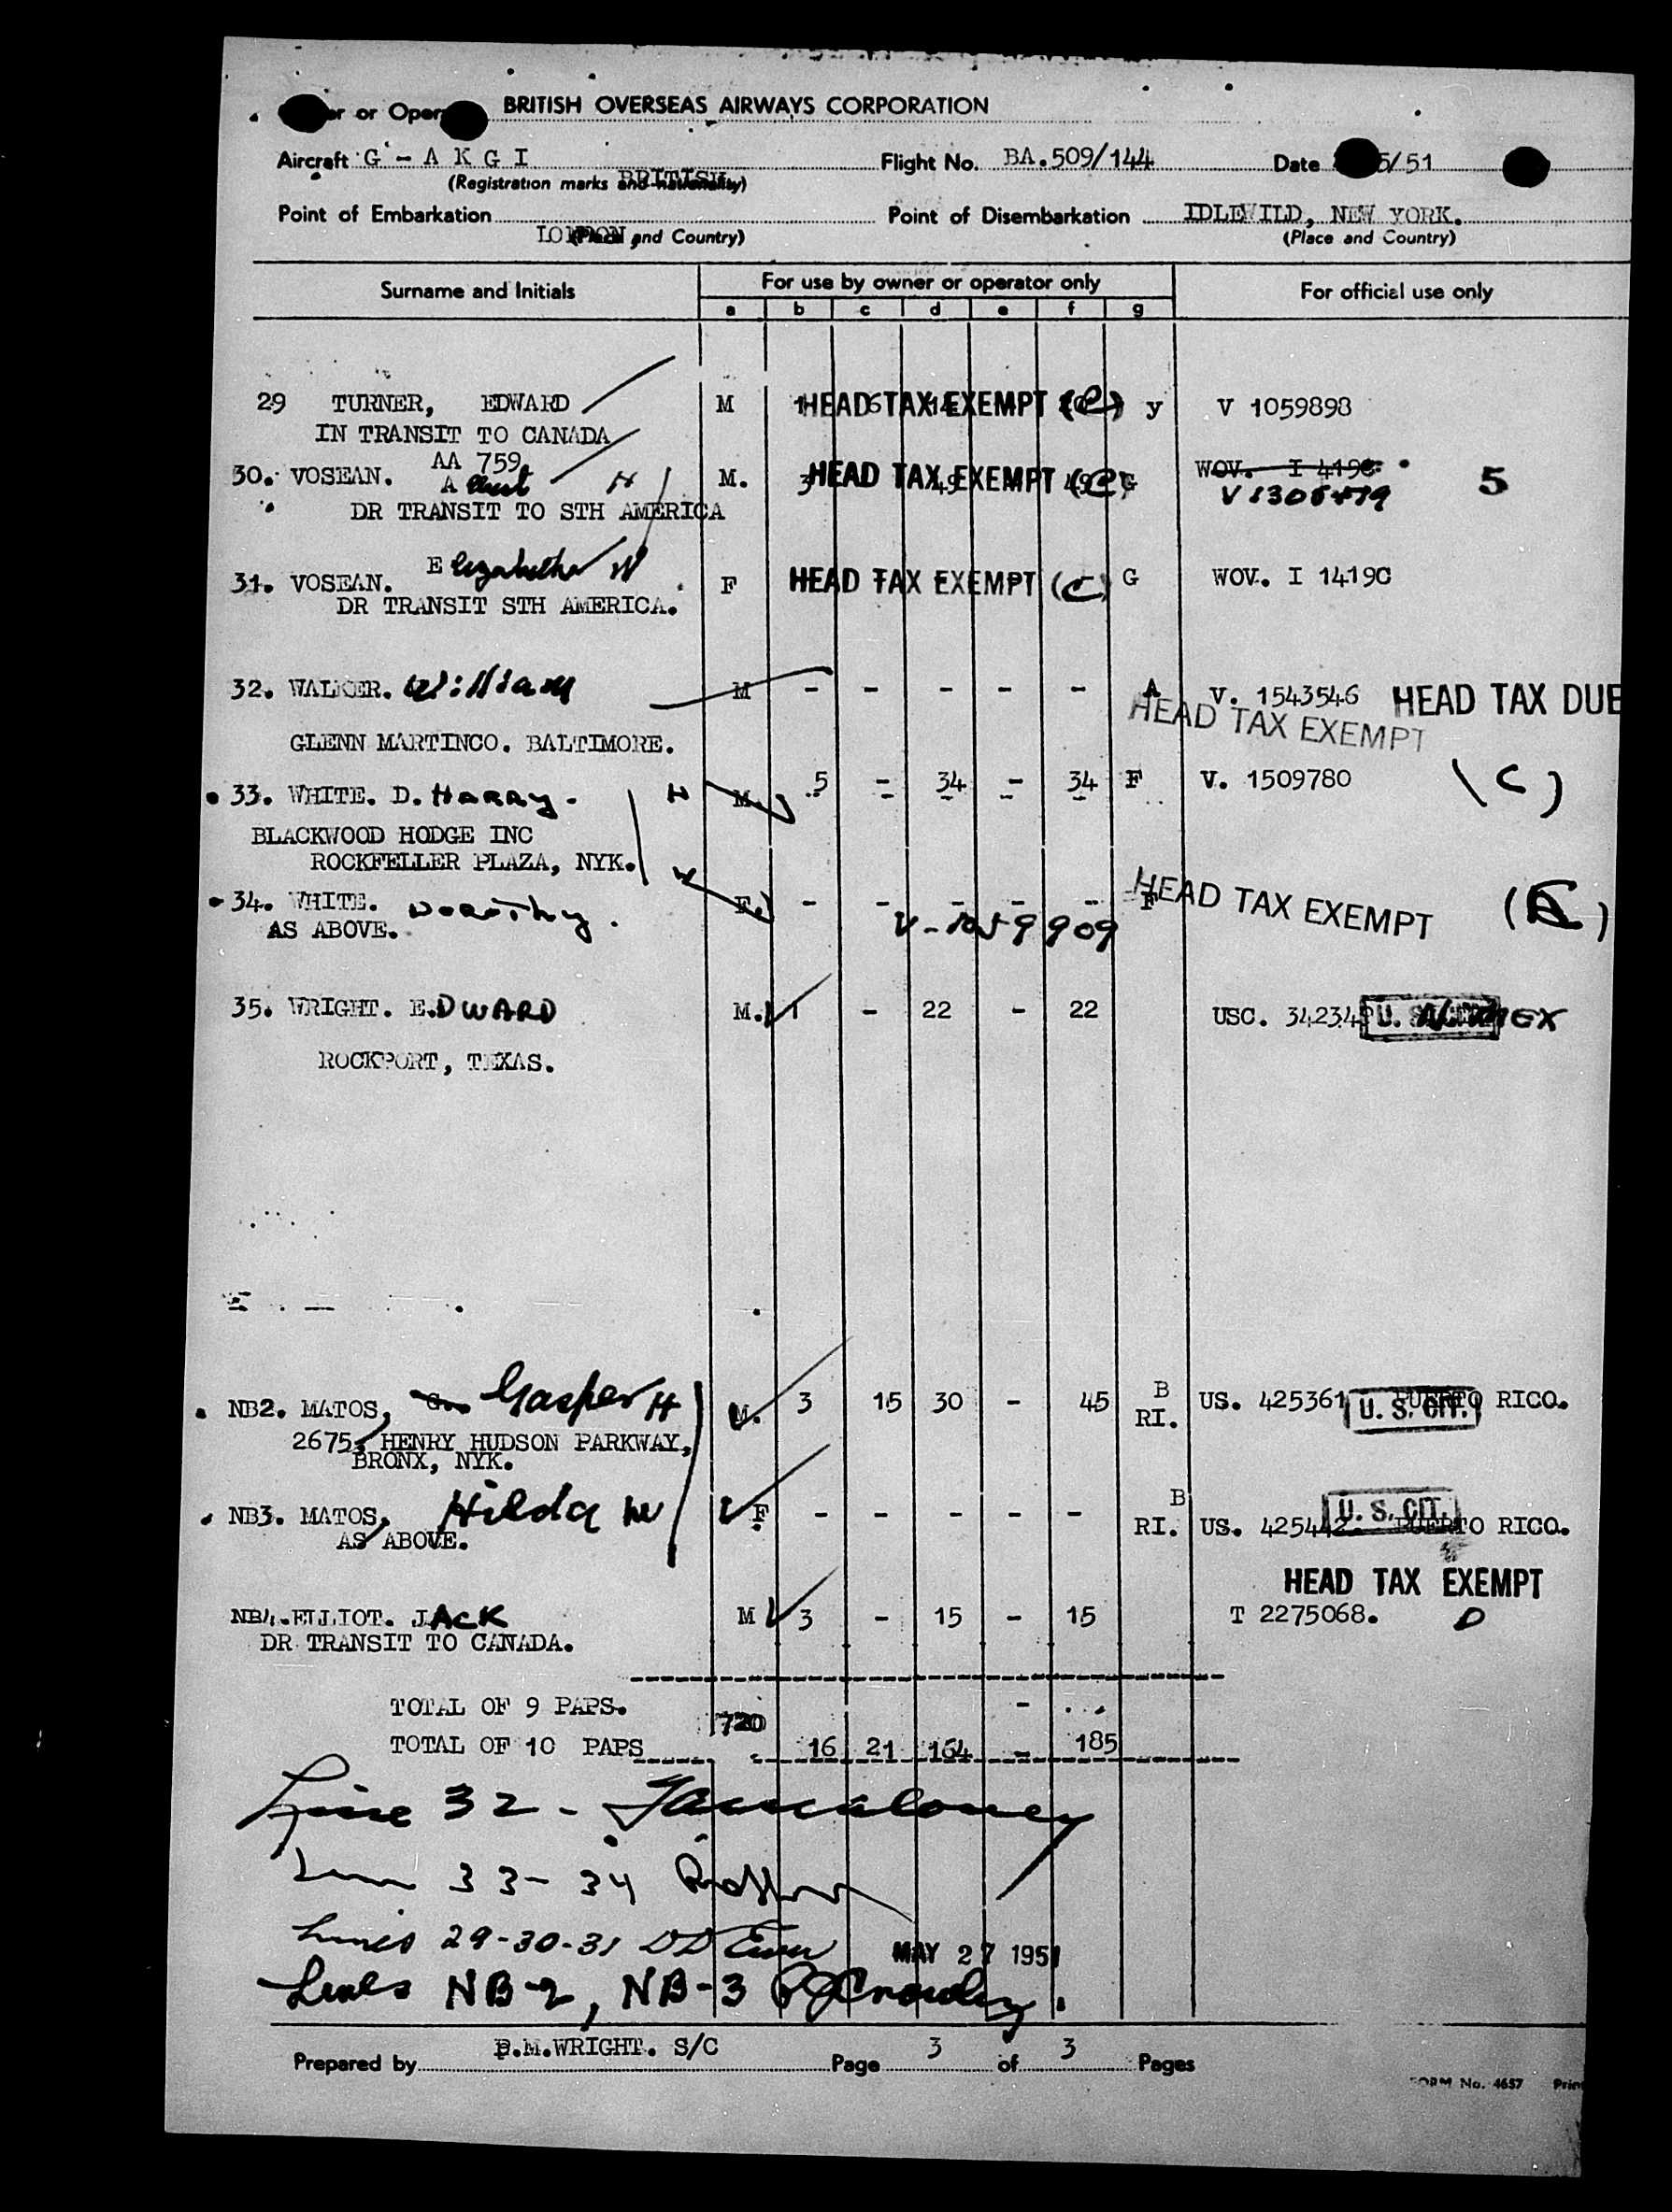 or Oper BRITISH OVERSEAS AIRWAYS CORPORATION
Aircraft G - A K G I Flight No. BA.509/144 Date 5/51
(Registration marks and nationality) BRITISH
Point of Embarkation Point of Disembarkation IDLEWILD, NEW YORK.
LONDON, (Place and Country) (Place and Country)
Surname and Initials For use by owner or operator only For official use only
a b c d e f g
29 TURNER, EDWARD M HEAD TAX EXEMPT (C) y V 1059898
IN TRANSIT TO CANADA
AA 759
30. VOSEAN. A H M. HEAD TAX EXEMPT (C) G WOV. I 4190. 5
DR TRANSIT TO STH AMERICA
31. VOSEAN. Elizabetha W F HEAD TAX EXEMPT (C) G WOV. I 14190
DR TRANSIT STH AMERICA.
32. WALKER. William M - - - - - A V. 1543546 HEAD TAX DUE
HEAD TAX EXEMPT
GLENN MARTINCO. BALTIMORE.
33. WHITE. D. HARRY. H M. 5 - 34 - 34 F V. 1509780 (C)
BLACKWOOD HODGE INC
ROCKFELLER PLAZA, NYK.
34. WHITE. Dorothy. W F. - - - - - F HEAD TAX EXEMPT (C)
AS ABOVE. V-1059909
35. WRIGHT. E.DWARD M. 1 - 22 - 22 USC. 34234
ROCKPORT, TEXAS.
NB2. MATOS, Gasper H M. 3 15 30 - 45 B RI. US. 425361 U. S. CIT. PUERTO RICO.
2675, HENRY HUDSON PARKWAY,
BRONX, NYK.
NB3. MATOS, Hilda W F - - - - - B RI. US. 425442 U. S. CIT. PUERTO RICO.
AS ABOVE.
HEAD TAX EXEMPT
NB4. ELLIOT. JACK M 3 - 15 - 15 T 2275068. D
DR TRANSIT TO CANADA.
TOTAL OF 9 PAPS. -
720
TOTAL OF 10 PAPS 16 21 164 - 185
Line 32 -
33 - 34
Lines 29-30-31 MAY 27 1951
Lines NB-2, NB-3
Prepared by D.M.WRIGHT. S/C Page 3 of 3 Pages
FORM No. 4657 Prin